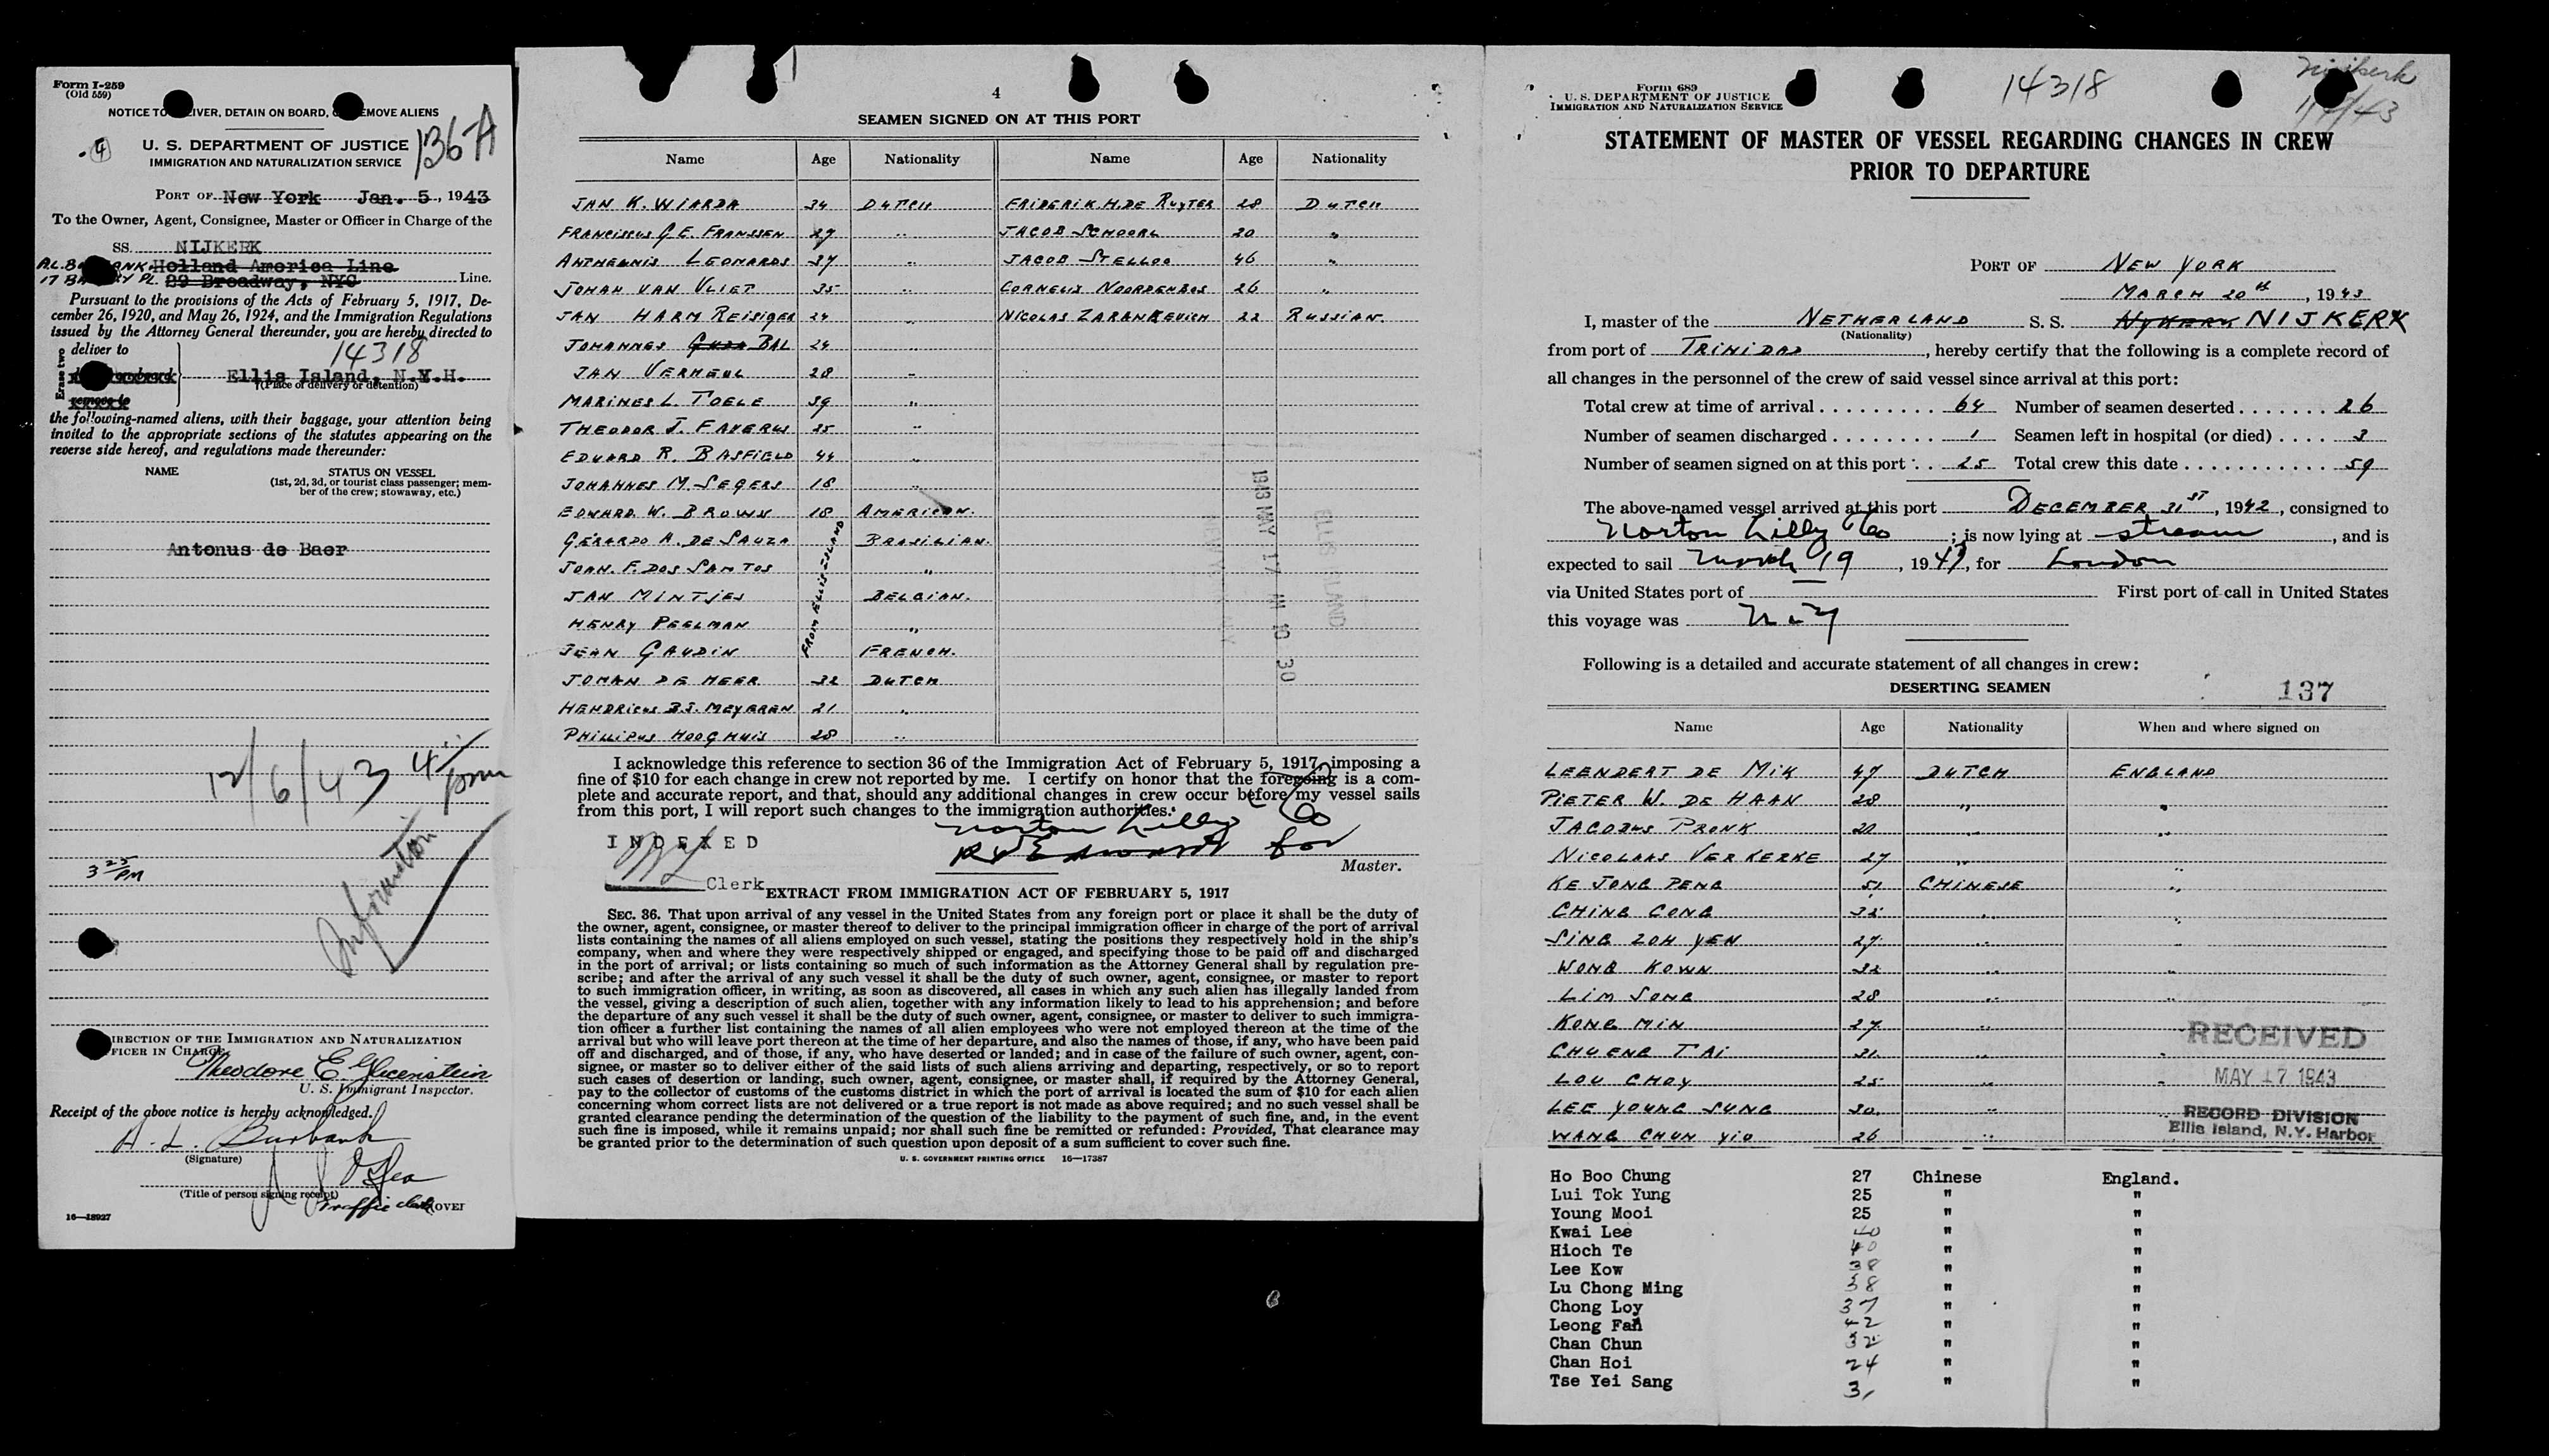 Form I-259
(Old 559)
NOTICE TO DELIVER, DETAIN ON BOARD, REMOVE ALIENS
136-A
4
U. S. DEPARTMENT OF JUSTICE
IMMIGRATION AND NATURALIZATION SERVICE
PORT OF New York Jan. 5, 1943
To the Owner, Agent, Consignee, Master or Officer in Charge of the
SS. NIJKERK
Holland America Line
29 Broadway, NYC Line.
Pursuant to the provisions of the Acts of February 5, 1917, De-
cember 26, 1920, and May 26, 1924, and the Immigration Regulations
issued by the Attorney General thereunder, you are hereby directed to
Erase two
deliver to
14318
Ellis Island, N.Y.H.
(Place of delivery or detention)
remove to
the following-named aliens, with their baggage, your attention being
invited to the appropriate sections of the statutes appearing on the
reverse side hereof, and regulations made thereunder:
NAME STATUS ON VESSEL
(1st, 2d, 3d, or tourist class passenger; mem-
ber of the crew; stowaway, etc.)
Antonus de Baer
12/6/43 4 pm
3 25 PM
Information
DIRECTION OF THE IMMIGRATION AND NATURALIZATION
OFFICER IN CHARGE
Theodore E Glicenstein
U. S. Immigrant Inspector.
Receipt of the above notice is hereby acknowledged.
A. L. Burbank
(Signature)
(Title of person signing receipt)
Traffic clerk
(OVER
16—18927
4
SEAMEN SIGNED ON AT THIS PORT
Name Age Nationality Name Age Nationality
JAN K. WIARDA 34 DUTCH FRIDERIK. H. DE RUYTER 28 DUTCH
FRANCISCUS G. E. FRANSSEN 27 " JACOB SCHOORL 20 "
LEONARDS 37 " JACOB STELLOO 46 "
JOHAN VAN VLIET 35 " CORNELIS NOORDENBOS 26 "
JAN HARM REISIGER 24 " NICOLAS ZARANKEVICH 22 RUSSIAN.
JOHANNES BAL 24 "
JAN VERMEUL 28 "
MARINES L. TOELE 39 "
THEODOR J. FAVERUS 25 "
EDUARD R. BASFIELD 44 "
JOHANNES M. SEGERS 18 "
EDWARD W. BROWN 18 AMERICAN.
GERARDO A. DE SAUZA BRASILIAN.
JOAN. F. DOS SANTOS "
JAN MINTJES BELGIAN.
HENRY PEELMAN "
JEAN GAUDIN FRENCH.
FROM ELLIS ISLAND
JOHAN DE MEER 32 DUTCH
HENDRICUS B.J. MEYEREN 21 "
PHILLIPUS HOOGHUIS 28 "
1943 MAY 17 AM 10 30
ELLIS ISLAND
I acknowledge this reference to section 36 of the Immigration Act of February 5, 1917, imposing a
fine of $10 for each change in crew not reported by me. I certify on honor that the foregoing is a com-
plete and accurate report, and that, should any additional changes in crew occur before my vessel sails
from this port, I will report such changes to the immigration authorities.
Norton Lilly Co
INDEXED
for
Master.
Clerk
EXTRACT FROM IMMIGRATION ACT OF FEBRUARY 5, 1917
SEC. 36. That upon arrival of any vessel in the United States from any foreign port or place it shall be the duty of
the owner, agent, consignee, or master thereof to deliver to the principal immigration officer in charge of the port of arrival
lists containing the names of all aliens employed on such vessel, stating the positions they respectively hold in the ship's
company, when and where they were respectively shipped or engaged, and specifying those to be paid off and discharged
in the port of arrival; or lists containing so much of such information as the Attorney General shall by regulation pre-
scribe; and after the arrival of any such vessel it shall be the duty of such owner, agent, consignee, or master to report
to such immigration officer, in writing, as soon as discovered, all cases in which any such alien has illegally landed from
the vessel, giving a description of such alien, together with any information likely to lead to his apprehension; and before
the departure of any such vessel it shall be the duty of such owner, agent, consignee, or master to deliver to such immigra-
tion officer a further list containing the names of all alien employees who were not employed thereon at the time of the
arrival but who will leave port thereon at the time of her departure, and also the names of those, if any, who have been paid
off and discharged, and of those, if any, who have deserted or landed; and in case of the failure of such owner, agent, con-
signee, or master so to deliver either of the said lists of such aliens arriving and departing, respectively, or so to report
such cases of desertion or landing, such owner, agent, consignee, or master shall, if required by the Attorney General,
pay to the collector of customs of the customs district in which the port of arrival is located the sum of $10 for each alien
concerning whom correct lists are not delivered or a true report is not made as above required; and no such vessel shall be
granted clearance pending the determination of the question of the liability to the payment of such fine, and, in the event
such fine is imposed, while it remains unpaid; nor shall such fine be remitted or refunded: Provided, That clearance may
be granted prior to the determination of such question upon deposit of a sum sufficient to cover such fine.
U. S. GOVERNMENT PRINTING OFFICE 16—17387
Form 689
U. S. DEPARTMENT OF JUSTICE
IMMIGRATION AND NATURALIZATION SERVICE
14318
Nijkerk
STATEMENT OF MASTER OF VESSEL REGARDING CHANGES IN CREW
PRIOR TO DEPARTURE
PORT OF NEW YORK
MARCH 20th, 1943
I, master of the NETHERLAND S. S. NIJKERK
(Nationality)
from port of TRINIDAD, hereby certify that the following is a complete record of
all changes in the personnel of the crew of said vessel since arrival at this port:
Total crew at time of arrival 64 Number of seamen deserted 26
Number of seamen discharged 1 Seamen left in hospital (or died) 3
Number of seamen signed on at this port 25 Total crew this date 59
The above-named vessel arrived at this port DECEMBER 31ST, 1942, consigned to
Norton Lilly Co; is now lying at stream, and is
expected to sail March 19, 1943, for London
via United States port of First port of call in United States
this voyage was N.Y
Following is a detailed and accurate statement of all changes in crew:
DESERTING SEAMEN 137
Name Age Nationality When and where signed on
LEENDERT DE MIK 47 DUTCH ENGLAND
PIETER W. DE HAAN 28 " "
JACOBUS PRONK 20 " "
NICOLAAS VERKERKE 27 " "
KE JONG PENG 51 CHINESE "
CHING CONG 35 " "
SING ZOH YEN 27 " "
WONG KOWN 32 " "
LIM SONG 28 " "
KONG MIN 27 " "
CHUENG TAI 31 " "
LOU CHOY 25 " "
LEE YOUNG SUNG 30 "
WANG CHUN YIO 26 "
RECEIVED
MAY 17 1943
RECORD DIVISION
Ellis Island, N.Y. Harbor
Ho Boo Chung 27 Chinese England.
Lui Tok Yung 25 " "
Young Mooi 25 " "
Kwai Lee 40 " "
Hioch Te 40 " "
Lee Kow 38 " "
Lu Chong Ming 38 " "
Chong Loy 37 " "
Leong Fan 42 " "
Chan Chun 32 " "
Chan Hoi 24 " "
Tse Yei Sang 31 " "